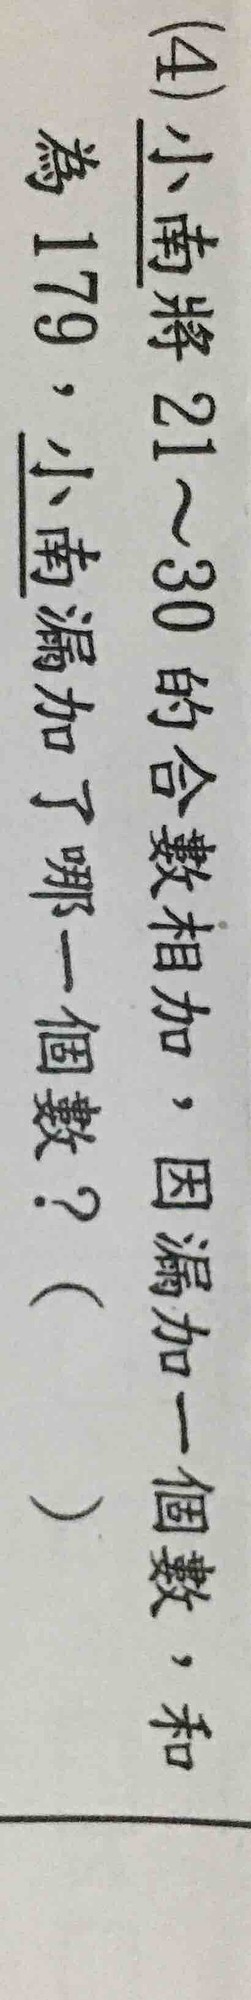 (4)小南將 21～30 的合數相加，因漏加一個數，和
為 179，小南漏加了哪一個數？（　　　）